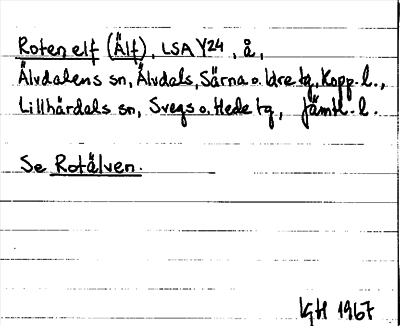 Roten elf (Älf), LSA Y24, å,
Älvdalens sn, Älvdals, Särna o. Idre tg, Kopp. l.,
Lillhärdals sn, Svegs o. Hede tg, Jämtl. l.
Se Rotälven.
IGH 1967